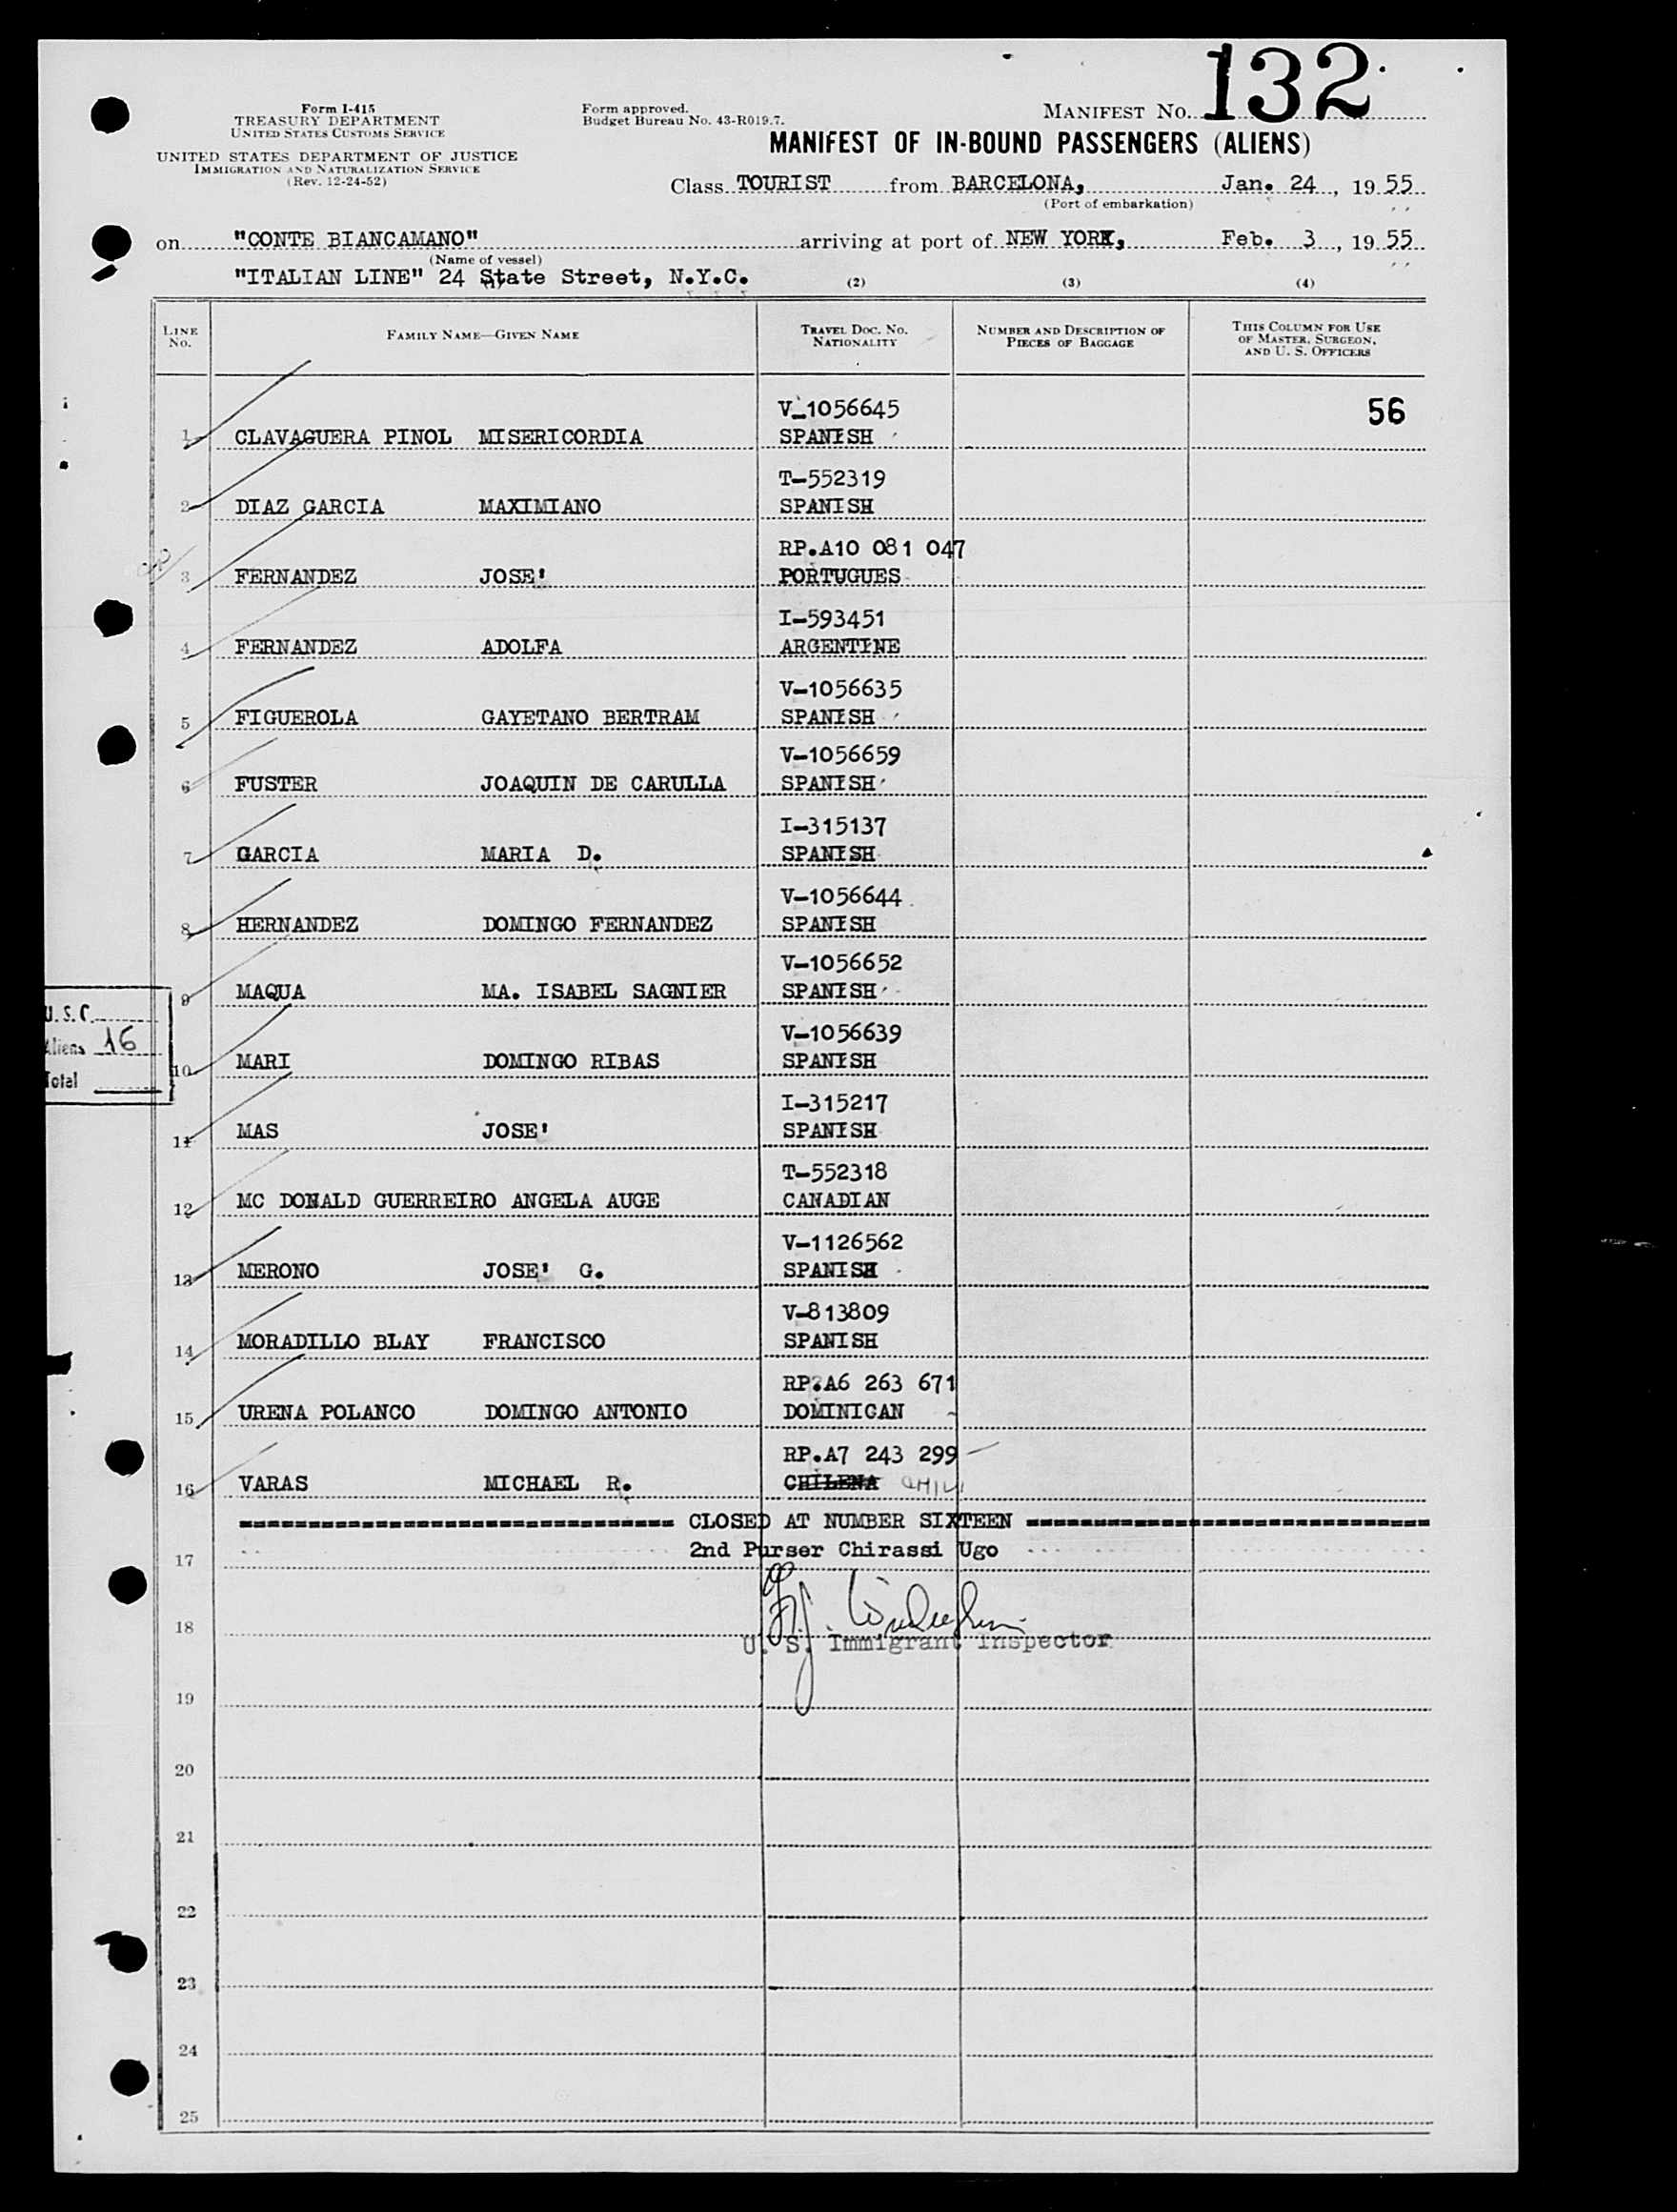 132
Form I-415
TREASURY DEPARTMENT
UNITED STATES CUSTOMS SERVICE
UNITED STATES DEPARTMENT OF JUSTICE
IMMIGRATION AND NATURALIZATION SERVICE
(Rev. 12-24-52)
Form approved.
Budget Bureau No. 43-R019.7.
MANIFEST No.
MANIFEST OF IN-BOUND PASSENGERS (ALIENS)
Class TOURIST from BARCELONA, Jan. 24, 1955
(Port of embarkation)
on "CONTE BIANCAMANO" arriving at port of NEW YORK, Feb. 3, 1955
(Name of vessel)
"ITALIAN LINE" 24 State Street, N.Y.C. (2) (3) (4)
LINE No. FAMILY NAME—GIVEN NAME TRAVEL DOC. No. NATIONALITY NUMBER AND DESCRIPTION OF PIECES OF BAGGAGE THIS COLUMN FOR USE OF MASTER, SURGEON, AND U. S. OFFICERS
V-1056645 56
1 CLAVAGUERA PINOL MISERICORDIA SPANISH
T-552319
2 DIAZ GARCIA MAXIMIANO SPANISH
RP.A10 081 047
3 FERNANDEZ JOSE' PORTUGUES
I-593451
4 FERNANDEZ ADOLFA ARGENTINE
V-1056635
5 FIGUEROLA GAYETANO BERTRAM SPANISH
V-1056659
6 FUSTER JOAQUIN DE CARULLA SPANISH
I-315137
7 GARCIA MARIA D. SPANISH
V-1056644
8 HERNANDEZ DOMINGO FERNANDEZ SPANISH
V-1056652
9 MAQUA MA. ISABEL SAGNIER SPANISH
U.S.C.
Aliens 16
Total
V-1056639
10 MARI DOMINGO RIBAS SPANISH
I-315217
11 MAS JOSE' SPANISH
T-552318
12 MC DONALD GUERREIRO ANGELA AUGE CANADIAN
V-1126562
13 MERONO JOSE' G. SPANISH
V-813809
14 MORADILLO BLAY FRANCISCO SPANISH
RP.A6 263 671
15 URENA POLANCO DOMINGO ANTONIO DOMINICAN
RP.A7 243 299
16 VARAS MICHAEL R. CHILENA CHILI
CLOSED AT NUMBER SIXTEEN
17 2nd Purser Chirassi Ugo
18 U. S. Immigrant Inspector
19
20
21
22
23
24
25